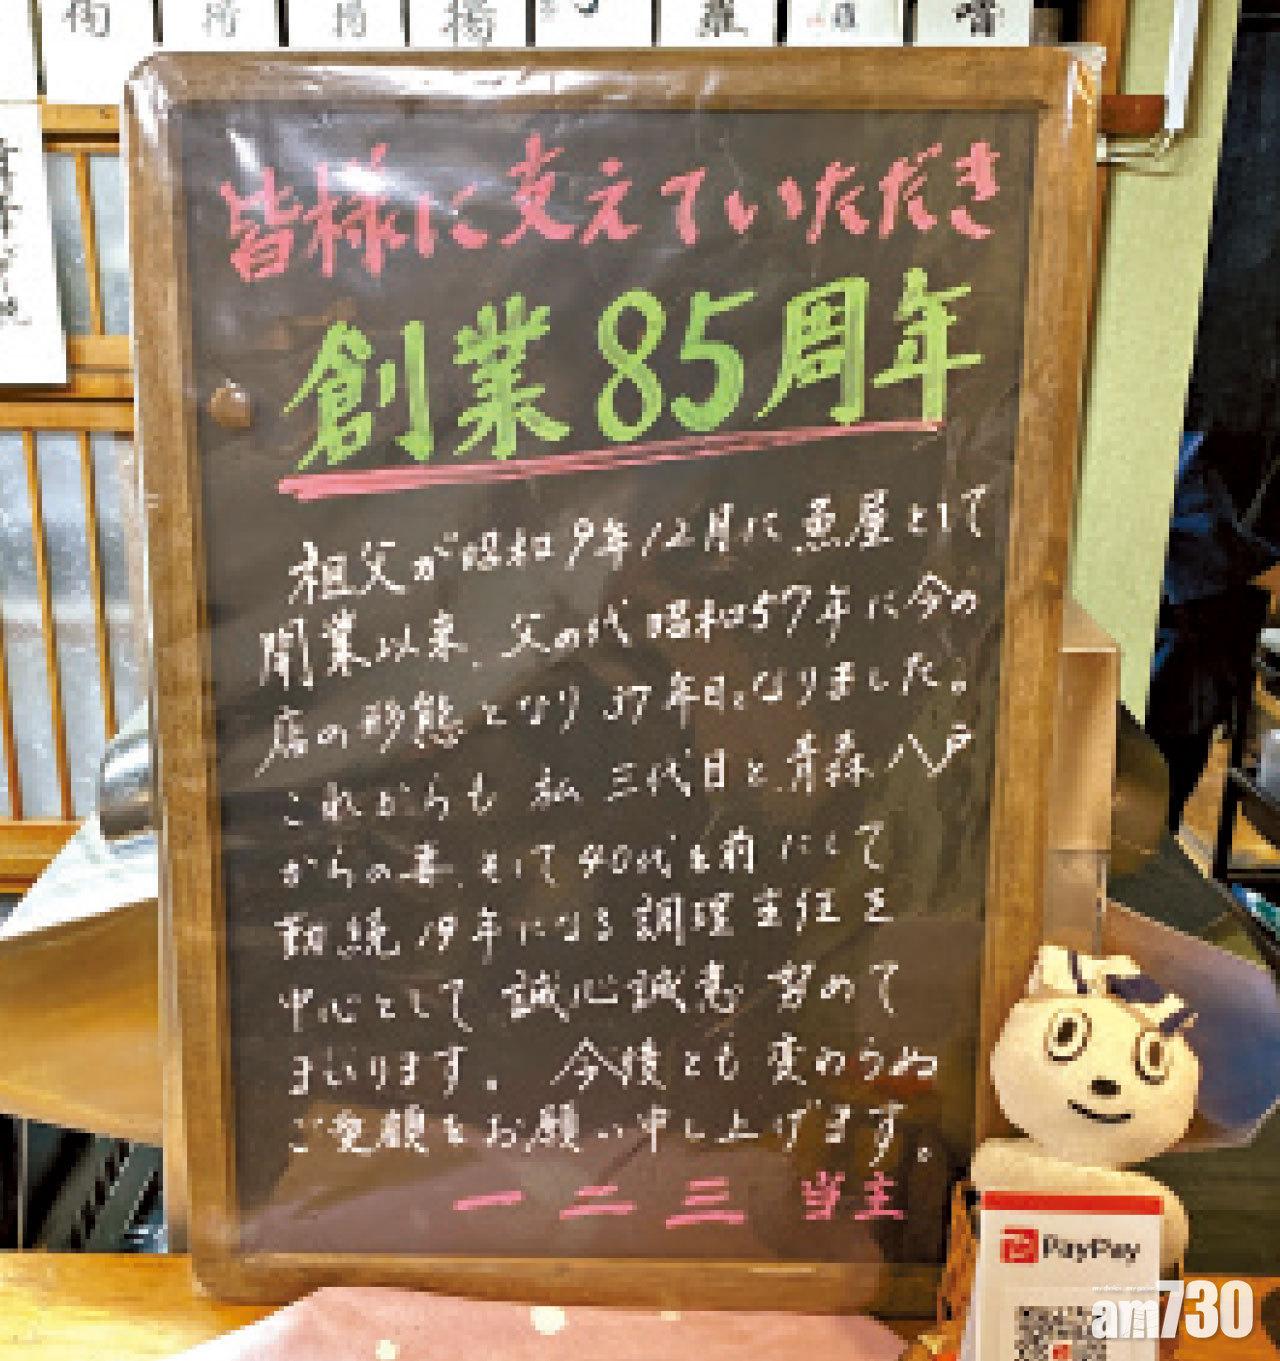 皆様に支えていただき
創業85周年
祖父が昭和9年12月に魚屋として
開業以来、父の代昭和57年に今の
店の形態となり37年目となりました。
これからも 私 三代目と、青森八戸
からの妻、そして40代を前にして
勤続19年になる調理主任を
中心として誠心誠意努めて
まいります。今後とも変わらぬ
ご愛顧をお願い申し上げます。
一二三 当主
PayPay
am730